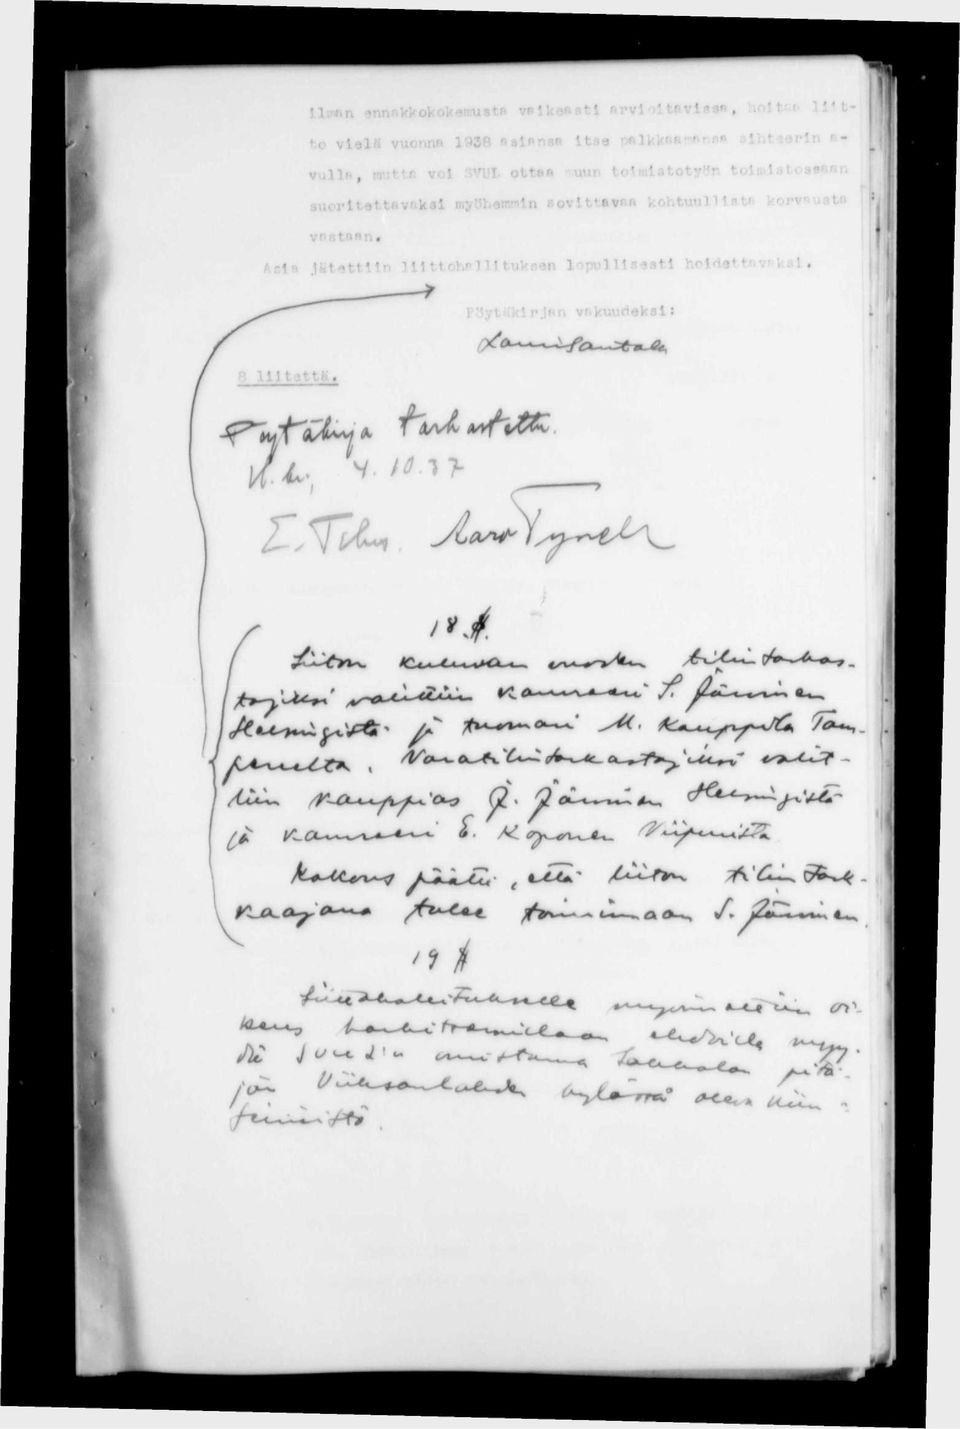 ilman ennakkokokemusta vaikeasti arvioitavissa, hoitaa liit-
to vielä vuonna 1938 asiansa itse palkkaamansa sihteerin a-
vulla, mutta voi SVUL ottaa muun toimistotyön toimistossaan
suoritettavaksi myöhemmin sovittavaa kohtuullista korvausta
vastaan.
Asia jätettiin liittohallituksen lopullisesti hoidettavaksi.
Pöytäkirjan vakuudeksi:
Lauri Santala
8 liitettä.
Pöytäkirja tarkastettu.
4.10.37
E.
18 §.
Liiton kuluvan vuoden tilintarkas-
tajiksi valittiin kamreeri S. Järvinen
Helsingistä ja tuomari M. Kauppila Tam-
pereelta. Varatilintarkastajiksi valit-
tiin kauppias J. Järvinen Helsingistä
ja kamreeri E. Koponen Viipurista
Kokous päätti, että liiton tilintark-
kaajana tulee toimimaan S. Järvinen.
19 §
Liittohallitukselle myönnettiin oi-
keus harkitsemillaan ehdoilla myy-
dä SVUL'n omistama Sakkolan pitä-
jän kylässä oleva kiin-
teimistö.